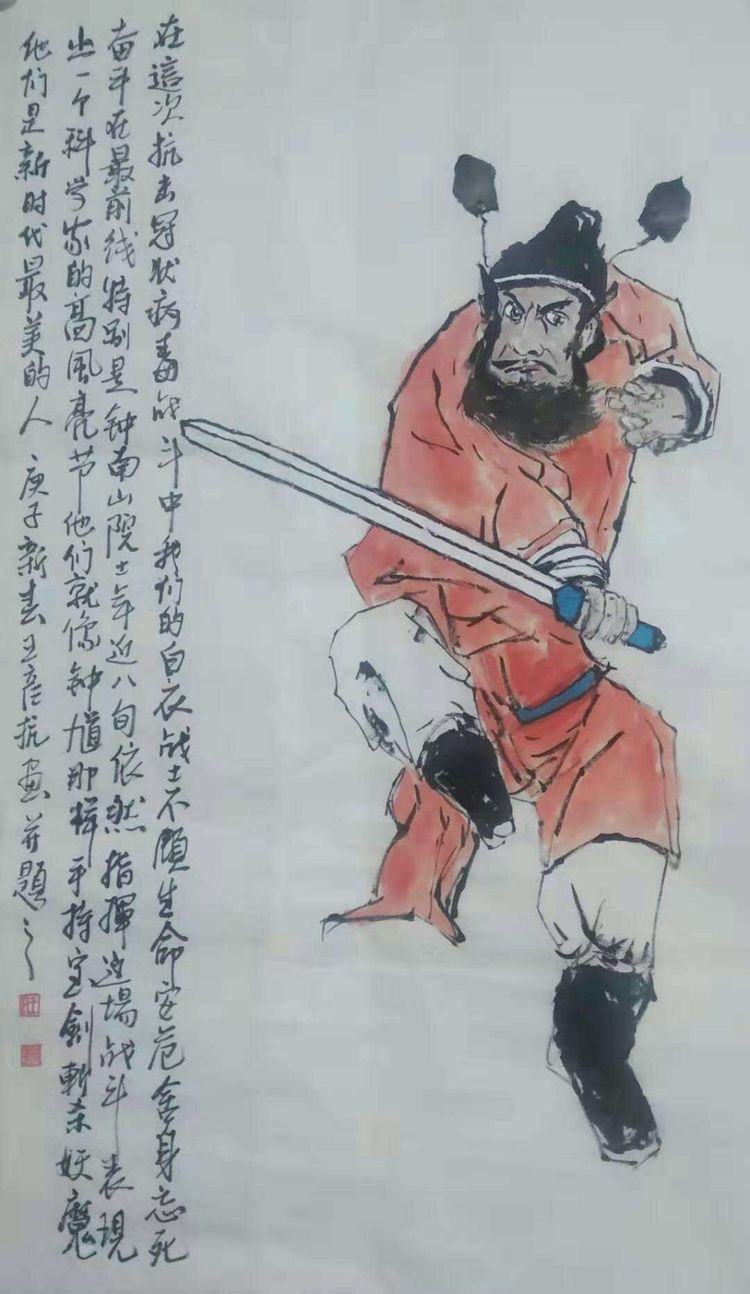 在這次抗击冠状病毒战斗中我们的白衣战士不顾生命安危舍身忘死
奋斗在最前线特别是钟南山院士年近八旬依然指揮这場战斗表現
出一个科学家的高風亮节他们就像钟馗那样手持宝劍斬杀妖魔
他们是新时代最美的人 庚子新春王彦抗画并題之